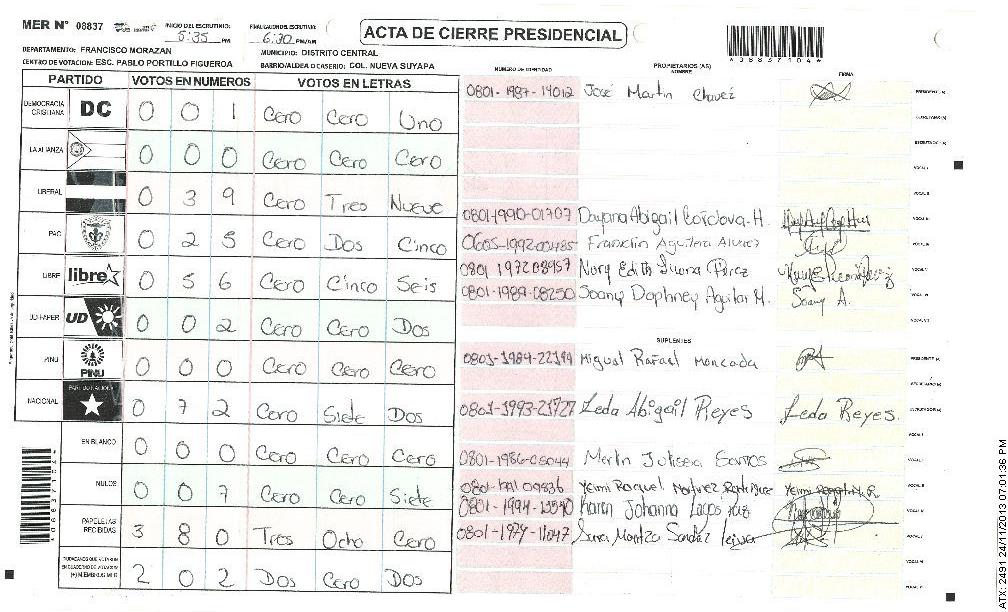 MER Nº 08837
INICIO DEL ESCRUTINIO: 5:35 PM
FINALIZACION ESCRUTINIO: 6:30 PM/AM
ACTA DE CIERRE PRESIDENCIAL
*08837104*
DEPARTAMENTO: FRANCISCO MORAZAN
MUNICIPIO: DISTRITO CENTRAL
CENTRO DE VOTACION: ESC. PABLO PORTILLO FIGUEROA
BARRIO/ALDEA O CASERIO: COL. NUEVA SUYAPA
NUMERO DE IDENTIDAD PROPIETARIOS (AS) NOMBRE FIRMA
PARTIDO VOTOS EN NUMEROS VOTOS EN LETRAS
DEMOCRACIA CRISTIANA DC 0 0 1 Cero Cero Uno
LA ALIANZA 0 0 0 Cero Cero Cero
LIBERAL 0 3 9 Cero Tres Nueve
PAC 0 2 5 Cero Dos Cinco
LIBRE libre 0 5 6 Cero Cinco Seis
UD-FAPER UD 0 0 2 Cero Cero Dos
PINU PINU 0 0 0 Cero Cero Cero
NACIONAL PARTIDO NACIONAL 0 7 2 Cero Siete Dos
EN BLANCO 0 0 0 Cero Cero Cero
NULOS 0 0 7 Cero Cero Siete
PAPELETAS RECIBIDAS 3 8 0 Tres Ocho Cero
CIUDADANOS QUE VOTARON EN CUADERNO DE VOTACION (+) MIEMBROS MER 2 0 2 Dos Cero Dos
0801-1987-14012 José Martin Chavéz PRESIDENTE (A)
SECRETARIO (A)
ESCRUTADOR (A)
VOCAL I
VOCAL II
0801-1990-01707 Dayana Abigail Cordova H. VOCAL III
Franklin Aguilera
Nury Edith Perez
0801-1989-08250 Soany Daphney Aguilar M. Soany A.
SUPLENTES
Miguel Rafael Moncada PRESIDENTE (A)
SECRETARIO (A)
0801-1993-21727 Leda Abigail Reyes Leda Reyes. ESCRUTADOR (A)
0801-1986-05044 Merlin Julissa Santos
Yeimi Raquel Martinez Rodriguez
Karen Johanna Lagos
*08837104*
ATX: 2491 24/11/2013 07:01:36 PM